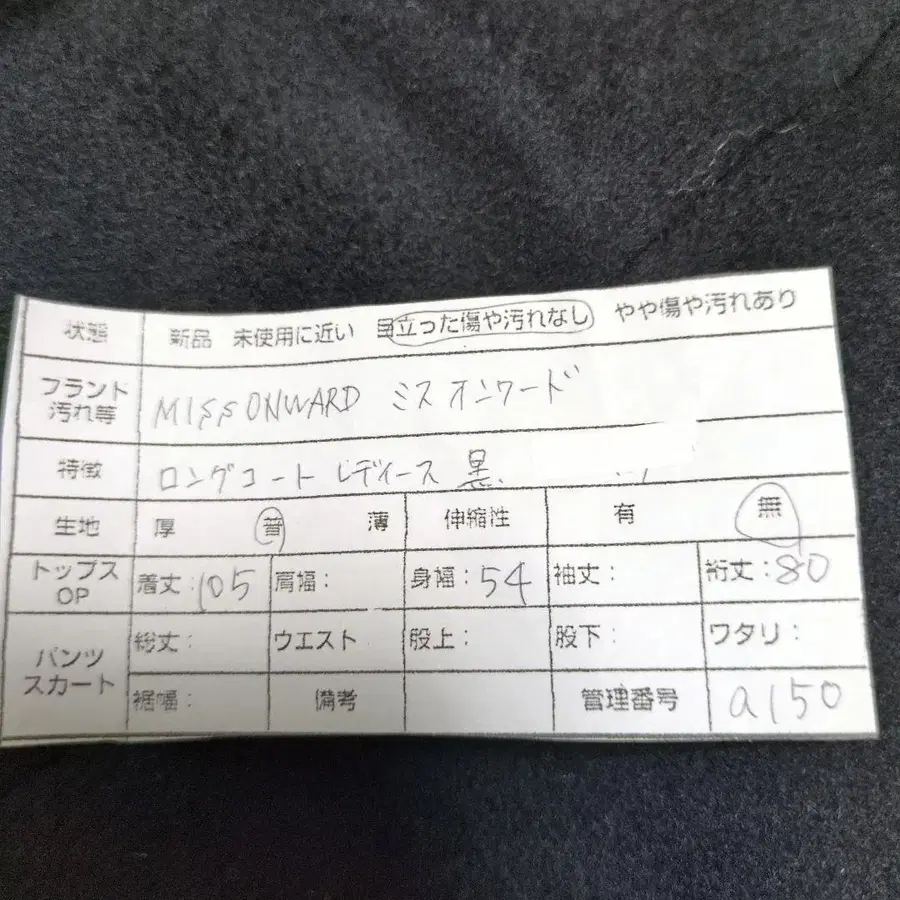 状態 新品 未使用に近い 目立った傷や汚れなし やや傷や汚れあり
フランド
汚れ等
MISS ONWARD ミスオンワード
特徴 ロングコート レディース 黒
生地 厚 普 薄 伸縮性 有 無
トップス
OP
着丈:105 肩幅: 身幅:54 袖丈: 裄丈:80
パンツ
スカート
総丈: ウエスト 股上: 股下: ワタリ:
裾幅: 備考 管理番号 a150